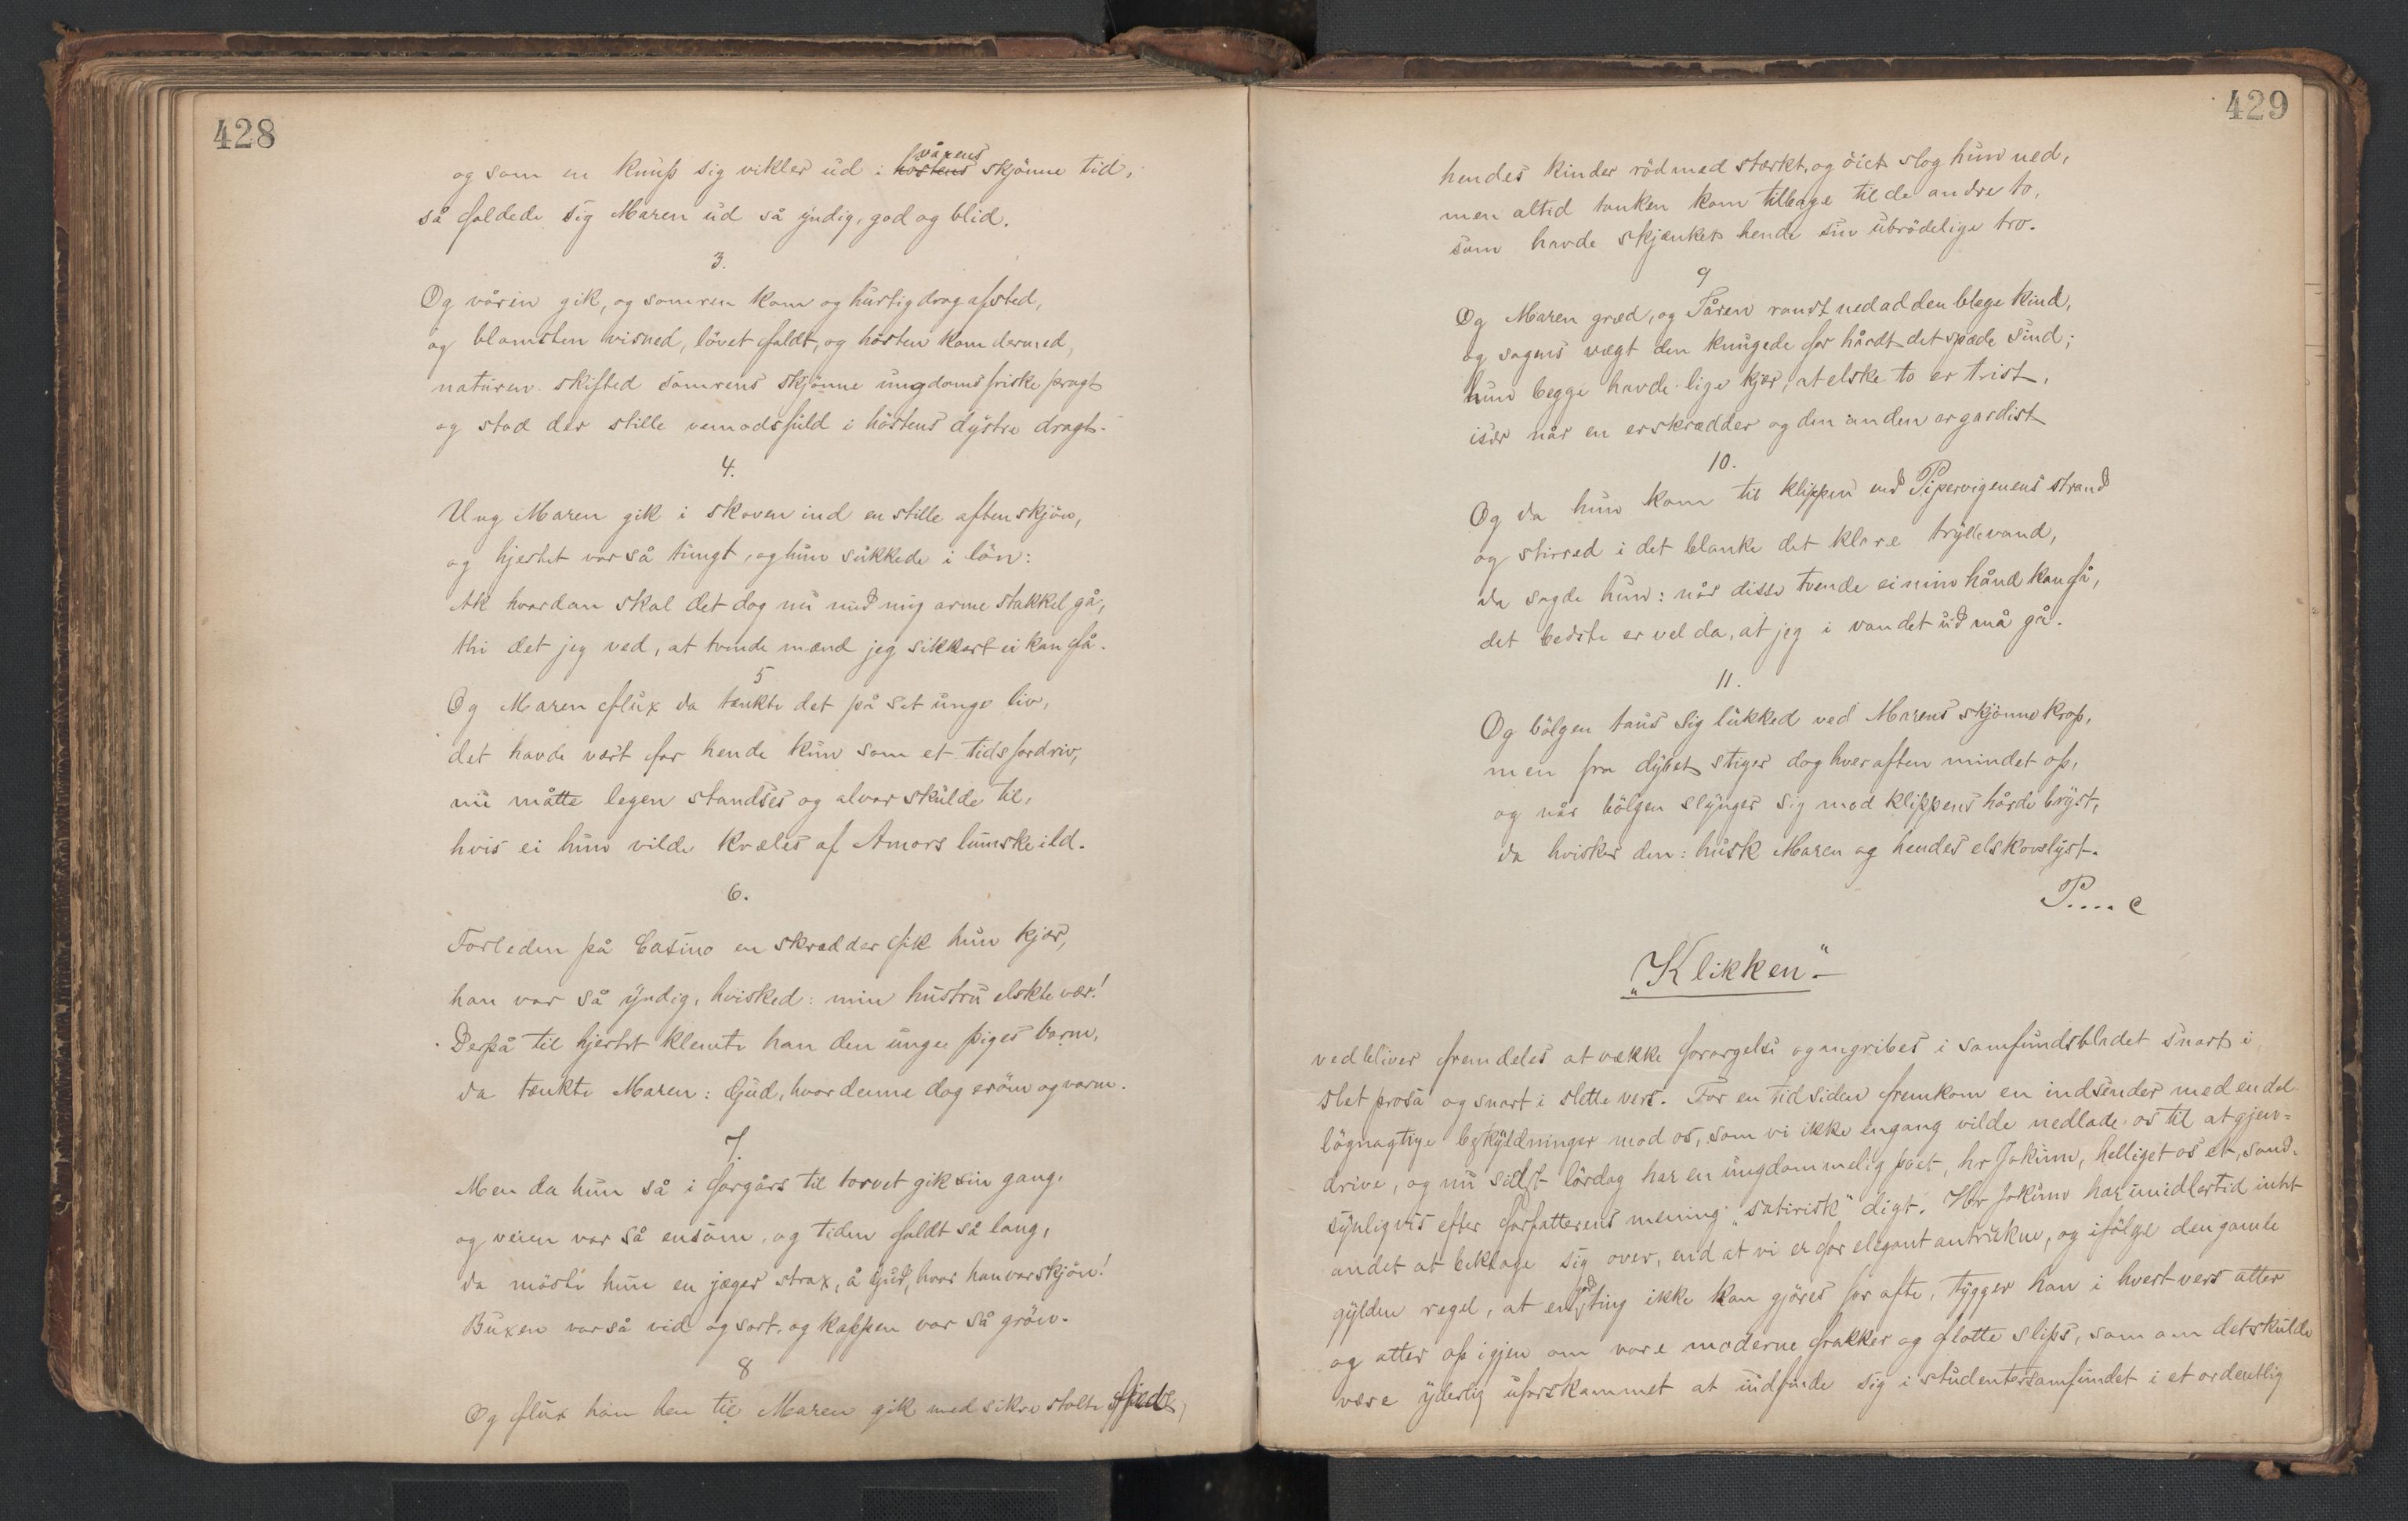 428
og som en knup sig vikler ud i vårens höstens skjönne tid,
så foldede sig Maren ud så yndig, god og blid.
3.
Og våren gik, og somren kom og hurtig drog afsted,
og blomsten visned, lövet faldt, og hösten kom dermed,
naturen skifted somrens skjönne ungdomsfriske pragt
og stod der stille vemodsfuld i höstens dystre dragt.
4.
Ung Maren gik i skoven ind en stille aften skjön,
og hjertet var så tungt, og hun sukkede i lön:
Ak hvordan skal det dog nu med mig arme stakkel gå,
thi det jeg ved, at tvende mænd jeg sikkert ei kan få.
5
Og Maren flux da tænkte det på sit unge liv,
det havde vært for hende kun som et tidsfordriv,
nu måtte legen standses og alvor skulde til,
hvis ei hun vilde kvæles af Amors lumske ild.
6.
Forleden på Casino en skrædder fik hun kjær,
han var så yndig, hvisked: min hustru elskte vær!
Derpå til hjertet klemte han den unge piges barm,
da tænkte Maren: Gud, hvor denne dog er öm og varm.
7.
Men da hun så i forgårs til torvet gik sin gang,
og veien var så ensom, og tiden faldt så lang,
da mödte hun en jæger strax, å Gud, hvor han var skjön!
Buxen var så vid og sort, og kappen var så grön.
8
Og flux han hen til Maren gik med sikre stolte fjed,
429
hendes kinder rödmed stærkt, og öiet slog hun ned,
men altid tanken kom tilbage til de andre to,
som havde skjænket hende sin ubrödelige tro.
9
Og Maren græd, og Tåren randt nedad den blege kind,
og sagens vægt den knugede for hårdt det spæde sind;
hun begge havde lige kjær, at elske to er trist,
især når en er skrædder og den anden er gardist
10.
Og da hun kom til klippen ved Pipervigenens strand
og stirred i det blanke det klare tryllevand,
da sagde hun: når disse tvende ei min hånd kan få,
det bedste er vel da, at jeg i vandet ud må gå.
11.
Og bölgen taus sig lukked ved Marens skjönne krop,
men fra dybet stiger dog hver aften mindet op,
og når bölgen slynger sig mod klippens hårde bryst,
da hvisker den: husk Maren og hendes elskovslyst.
P.... e
"Klikken"
vedbliver fremdeles at vække forargelse og angribes i samfundsbladet snart i
slet prosa og snart i slette vers. For en tid siden fremkom en indsender med en del
lögnagtige beskyldninger mod os, som vi ikke engang vilde nedlade os til at gjen-
drive, og nu sidst lördag har en ungdommelig poet, hr Jokum, helliget os et, sand-
synligvis efter forfatterens mening "satirisk" digt. Hr Jokum har imidlertid intet
andet at beklage sig over, end at vi er for elegant antrukne, og ifölge den gamle
gyldne regel, at en god ting ikke kan gjöres for ofte, tygger han i hvert vers atter
og atter op igjen om vore moderne frakker og flotte slips, som om det skulde
være yderlig uforskammet at indfinde sig i studentersamfundet i et ordentlig